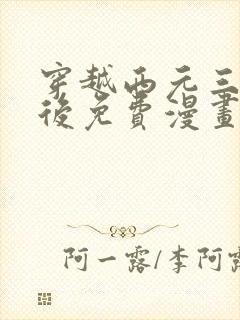 穿越西元三
後免費漫畫
阿一露/李阿露